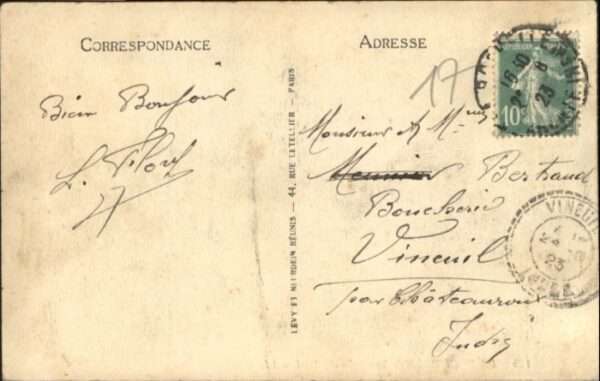 CORRESPONDANCE
Bien Bonjour
ADRESSE
17
Monsieur & Mme
Meunier Bertrand
Boucherie
Vineuil
par Châteauroux
Indre
LÉVY ET NEURDEIN RÉUNIS — 44, RUE LETELLIER — PARIS
10c
VINEUIL
23